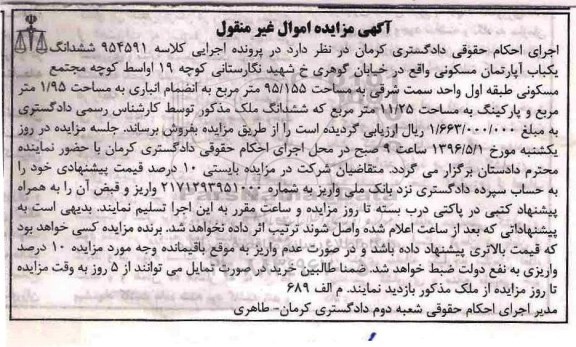 آگهی مزایده اموال غیر منقول
اجرای احکام حقوقی دادگستری کرمان در نظر دارد در پرونده اجرایی کلاسه ۹۵۴۵۹۱ ششدانگ
یکباب آپارتمان مسکونی واقع در خیابان گوهری خ شهید نگارستانی کوچه ۱۹ اواسط کوچه مجتمع
مسکونی طبقه اول واحد سمت شرقی به مساحت ۹۵/۱۵۵ متر مربع به انضمام انباری به مساحت ۱/۹۵ متر
مربع و پارکینگ به مساحت ۱۱/۲۵ متر مربع که ششدانگ ملک مذکور توسط کارشناس رسمی دادگستری
به مبلغ ۱/۶۶۳/۰۰۰/۰۰۰ ریال ارزیابی گردیده است را از طریق مزایده بفروش برساند. جلسه مزایده در روز
یکشنبه مورخ ۱۳۹۶/۵/۱ ساعت ۹ صبح در محل اجرای احکام حقوقی دادگستری کرمان با حضور نماینده
محترم دادستان برگزار می گردد. متقاضیان شرکت در مزایده بایستی ۱۰ درصد قیمت پیشنهادی خود را
به حساب سپرده دادگستری نزد بانک ملی واریز به شماره ۲۱۷۱۲۹۳۹۵۱۰۰۰ واریز و قبض آن را به همراه
پیشنهاد کتبی در پاکتی درب بسته تا روز مزایده و ساعت مقرر به این اجرا تسلیم نمایند. بدیهی است به
پیشنهاداتی که بعد از ساعت اعلام شده واصل شوند ترتیب اثر داده نخواهد شد. برنده مزایده کسی خواهد بود
که قیمت بالاتری پیشنهاد داده باشد و در صورت عدم واریز به موقع باقیمانده وجه مورد مزایده ۱۰ درصد
واریزی به نفع دولت ضبط خواهد شد. ضمنا طالبین خرید در صورت تمایل می توانند از ۵ روز به وقت مزایده
تا روز مزایده از ملک مذکور بازدید نمایند. م الف ۶۸۹
مدیر اجرای احکام حقوقی شعبه دوم دادگستری کرمان- طاهری